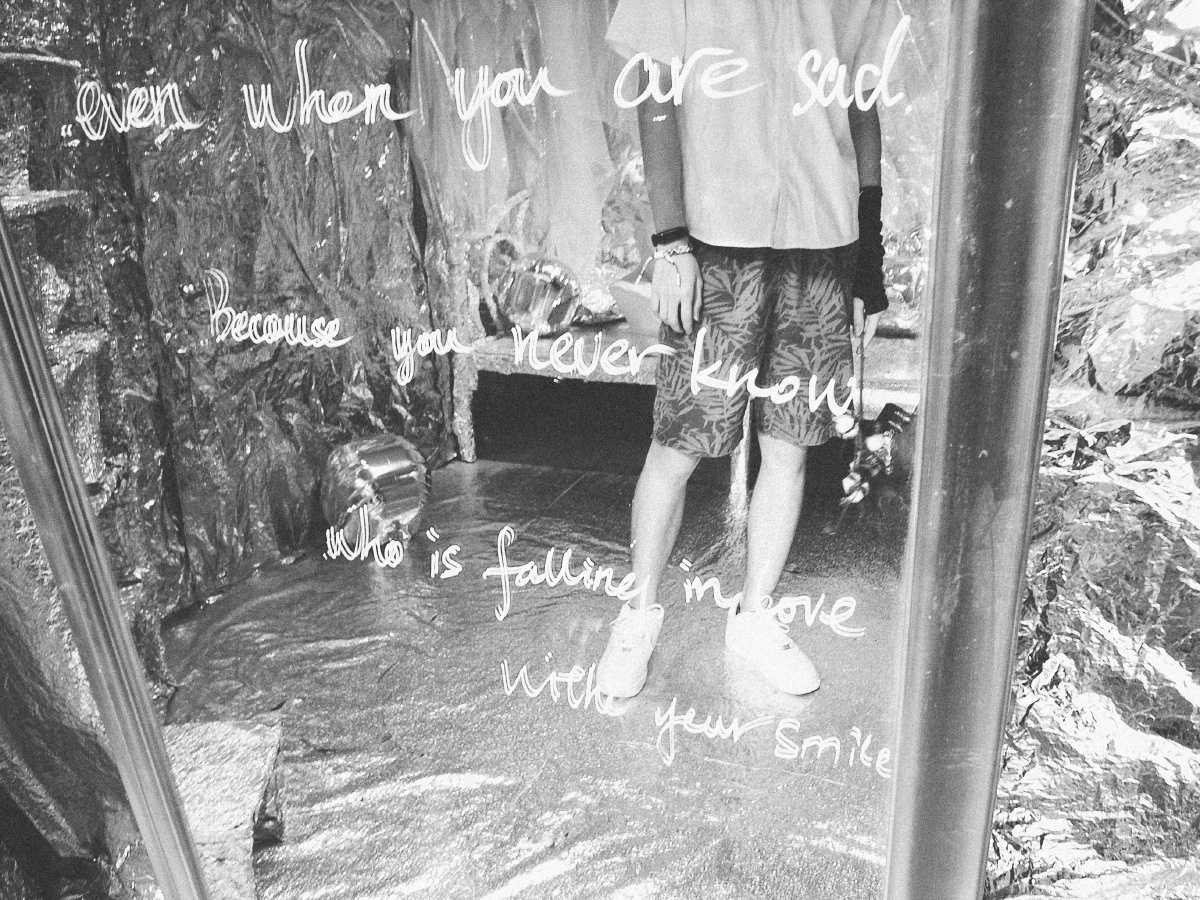 even when you are sad.
Because you never know
who is falling in love
with your smile